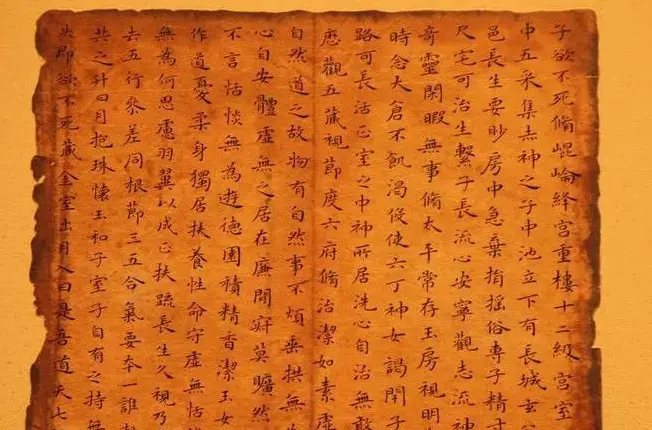 子欲不死脩崐崘絳宮重樓十二級宮室
中五采集赤神之子中池立下有長城玄
邑長生要眇房中急棄捐搖俗專子精寸
尺宅可治生繫子長流心安寧觀志流神
奇靈閑暇無事脩太平常存玉房視明
時念大倉不飢渴役使六丁神女謁閉子
路可長活正室之中神所居洗心自治無敢
歷觀五藏視節度六府脩治潔如素虛
自然道之故物有自然事不煩垂拱無
心自安體虛無之居在廉間寂莫曠然
不言恬惔無為遊德園積精香潔玉女
作道憂柔身獨居扶養性命守虛無恬
無為何思慮羽翼以成正扶疏長生久視乃
去五行參差同根節三五合氣要本一誰
共之升日月抱珠懷玉和子室子自有之持無
失即欲不死藏金室出月入日是吾道天七